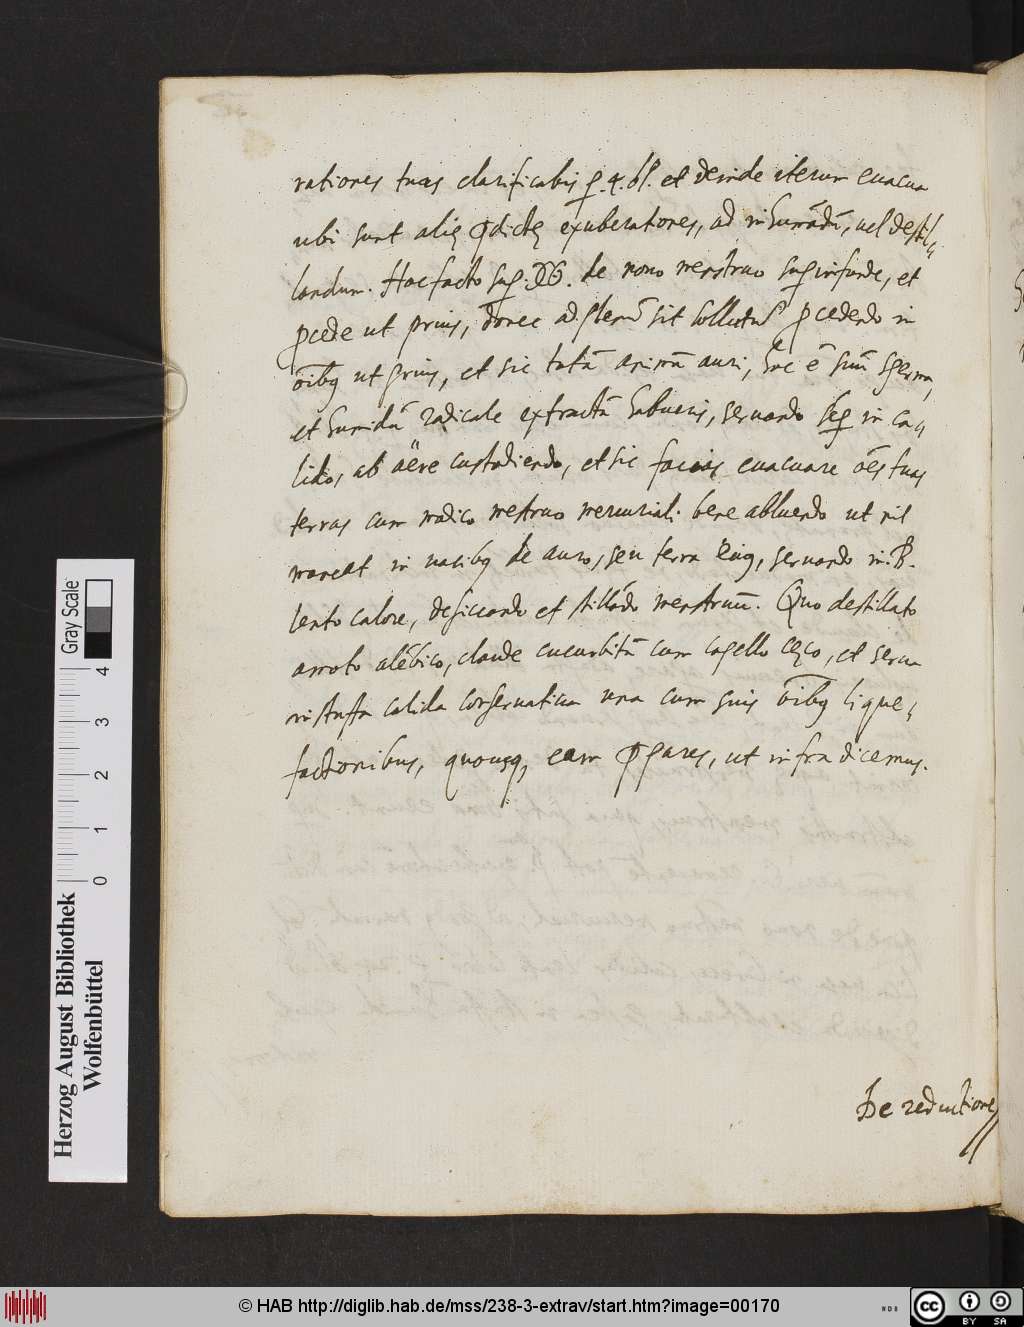 rationes tuas clarificabis p. 4. di. et deinde iterum euacua
ubi sunt alię p̄dictę exuberationes, ad inhumādū, uel desti„
landum. Hoc facto sup. de nouo menstruo superinfunde, et
pcede ut prius, donec ad plenū sit sollutū pcedendo in
oībq ut prius, et sic totā animā auri, hoc ē suū sperma,
et humidū radicale extractū habueris, seruando semp in ca„
lido, ab aëre custodiendo, et sic facias euacuare oēs tuas
terras cum modico mēstruo mercuriali bene abluendo ut nil
maneat in uasibq de auro, seu terra eiuq, seruando in B.
lento calore, desiccando et stillādo menstruū. Quo destillato
amoto alēbico, claude cucurbitā cum capello cęco, et serua
in stuffa calida conseruatiua una cum suis oībq lique„
factionibus, quousq, eam p̄pares, ut infra dicemus.
De reductione
Herzog August Bibliothek
Wolfenbüttel
Gray Scale
0 1 2 3 4
© HAB http://diglib.hab.de/mss/238-3-extrav/start.htm?image=00170
NDB
cc BY SA